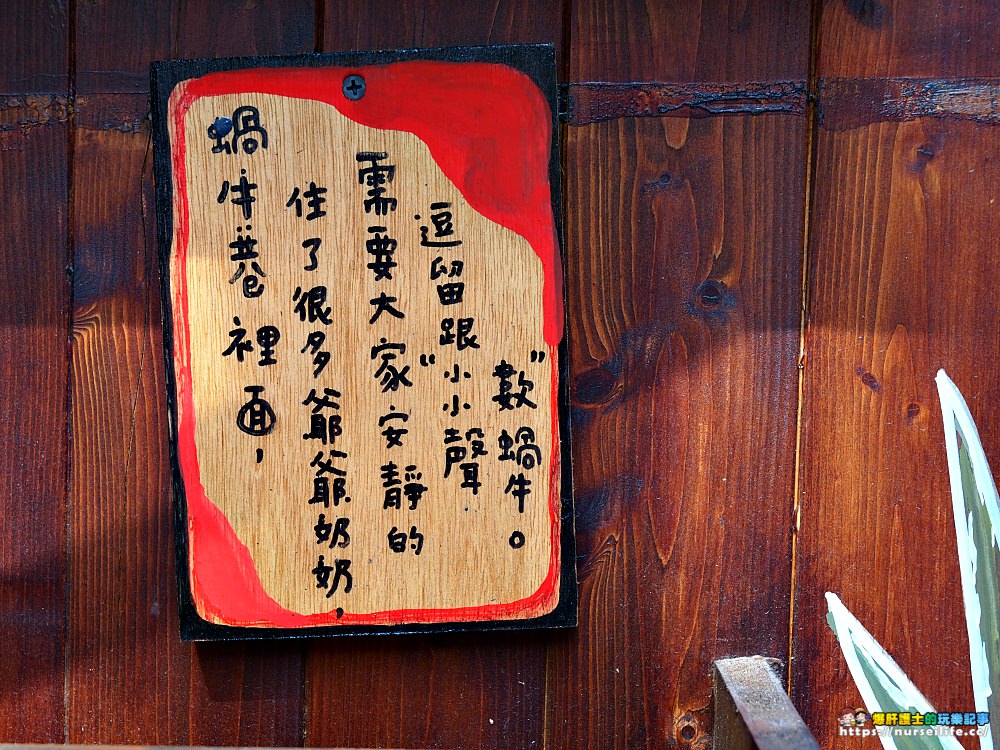 蝸牛巷裡面，
住了很多爺爺奶奶，
需要大家安靜的
逗留跟“小小聲
”數蝸牛。
爆肝護士的玩樂記事
https://nurseilife.cc/